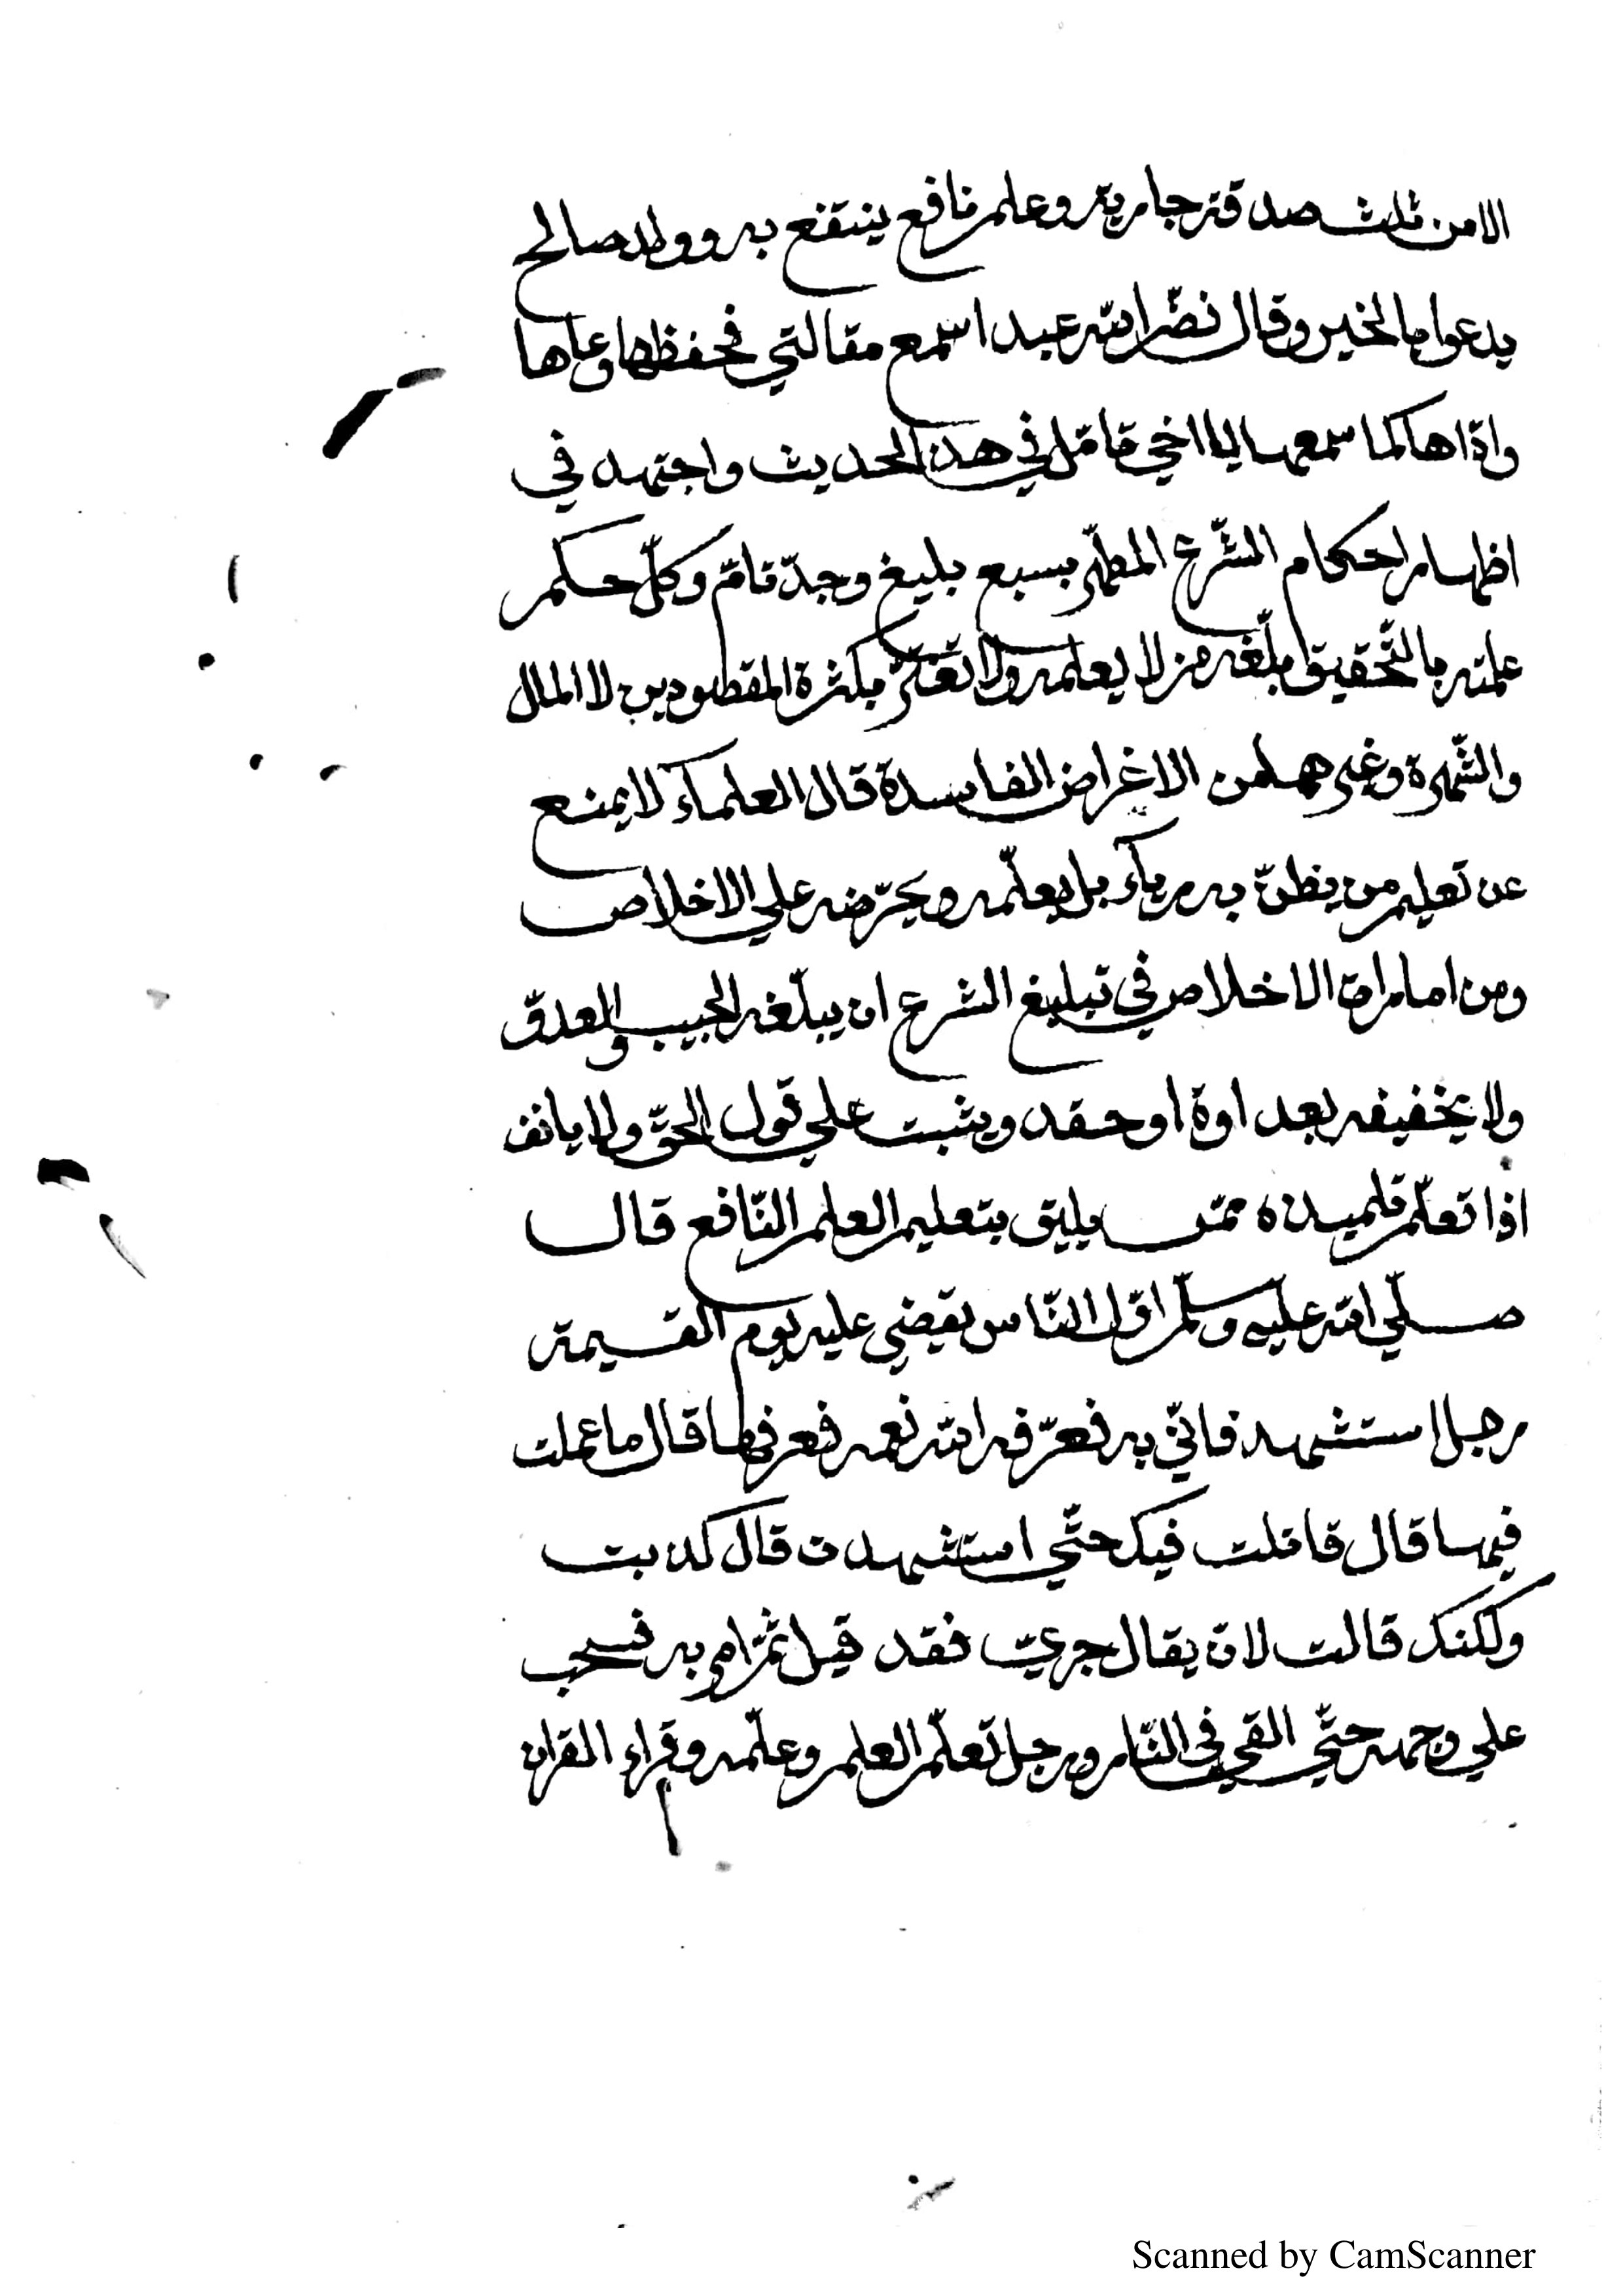 الا من ثلث صدقة جارية وعلم نافع ينتفع به وولد صالح
يدعوا بالخير وقال نضّر الله عبدا سمع مقالتي فحفظها وعاها
واداها كما سمعها يا اخي تامّل في هذا الحديث واجتهد في
اظهار احكام الشّرع المطهّر بسبع بليغ وجدّ تامّ وكلّ حكم
علمته بالتّحقيق بلّغه من لا يعلمه ولا تغترّ بكثرة المقصودين لا المال
والشّهرة وغيرها من الاغراض الفاسدة قال العلمآء لا يمنع
عن تعليم من يظنّ به ريآء بل يعلّمه ويحرّضه علي الاخلاص
ومن امارات الاخلاص في تبليغ الشرع ان يبلّغه الحبيب والعدوّ
ولا يخفيفه بعداوة او حقد ويثبت علي قول الحقّ ولا يانف
اذا تعلّم تلميذه ممّن يليق بتعليم العلم النّافع قال
صلّي الله عليه وسلّم اوّل النّاس يقضي عليه يوم القيمة
رجل استشهد فاتي به فعرّفه الله نعمه فعرفها قال ما عملت
فيها قال قاتلت فيك حتّي استشهدت قال كذبت
ولكنك قاتلت لان يقال جرئ فقد قيل ثمّ امر به فسحب
علي وجهه حتّي القي في النّار ورجل تعلّم العلم وعلّمه وقراء القران
Scanned by CamScanner